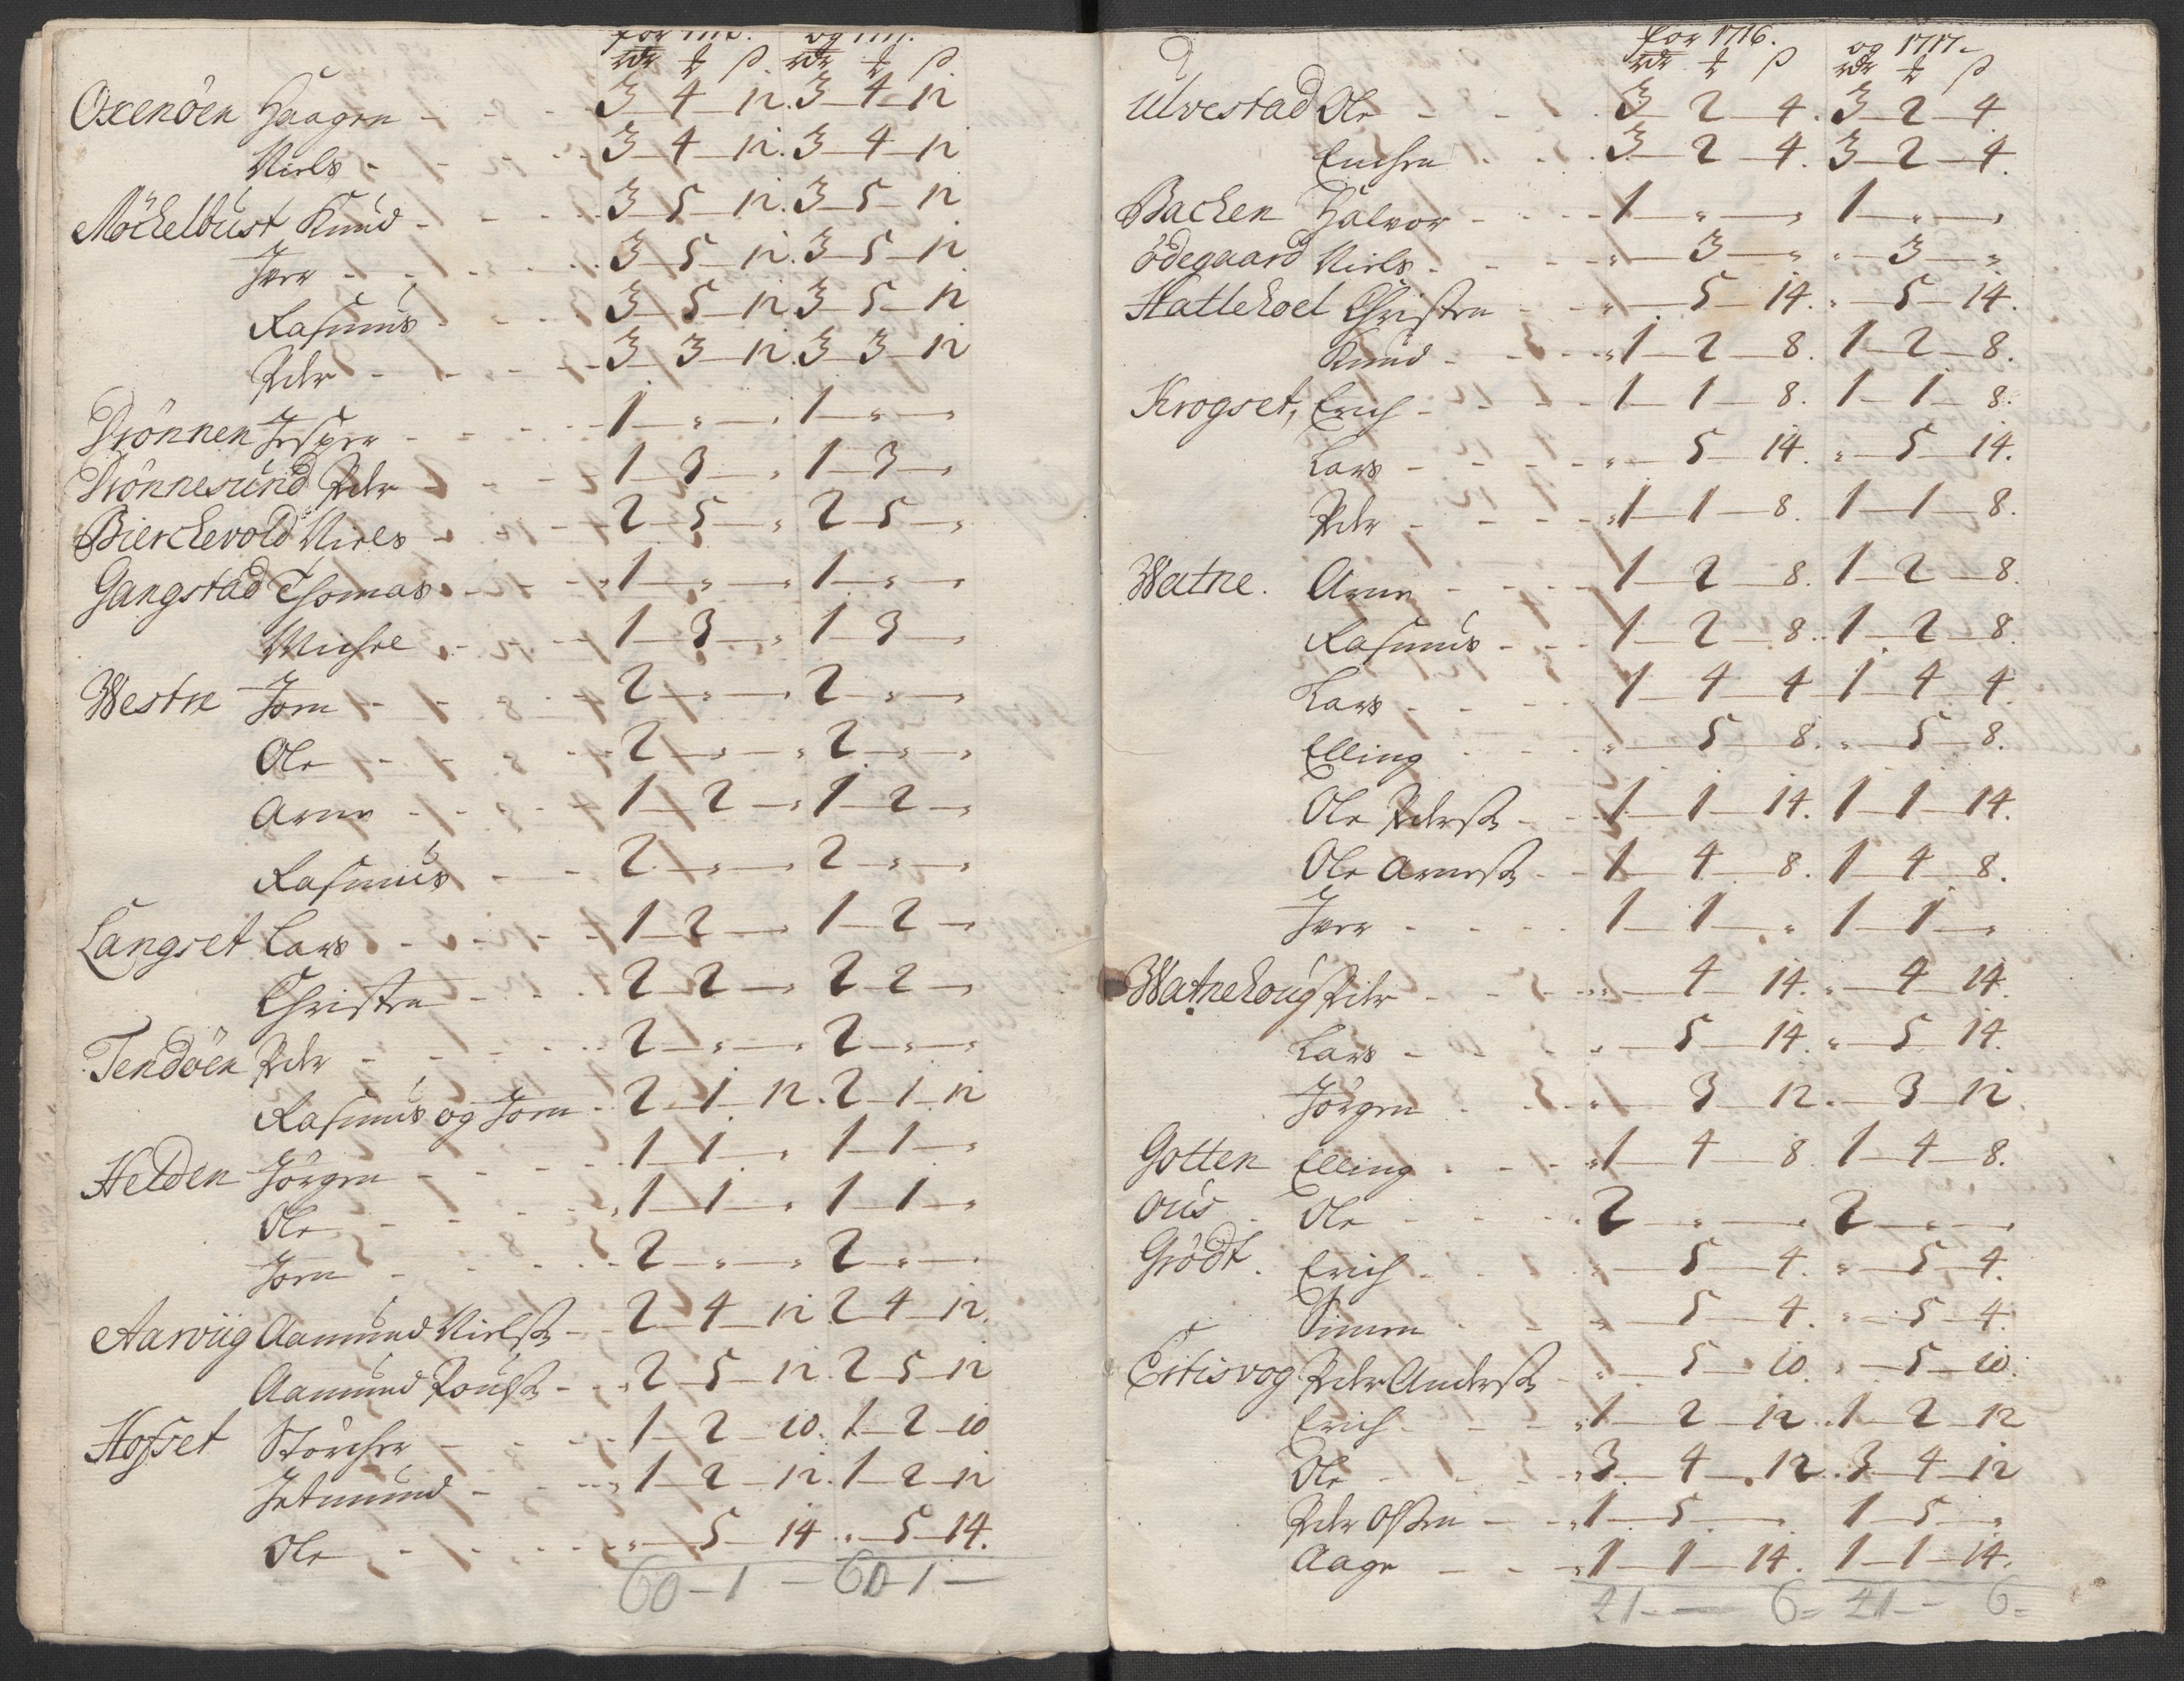 for 1716. og 1717.
rdr ț β. rdr ț β
Oxenöen Haagen - 3 4 12. 3 4 12
Niels - 3 4 12. 3 4 12
Möckelbust Knud - 3 5 12. 3 5 12
Iver - 3 5 12. 3 5 12
Rasmus - 3 5 12 3 5 12
Peder - 3 3 12. 3 3 12
Drönnen Jesper - 1 " " 1 " "
Drönnesund Peder 1 3 " 1 3 "
Bierckevold Niels - 2 5 " 2 5 "
Gangstad Thomas - 1 " " 1 " "
Michel - 1 3 " 1 3 "
Westre Jorn - 2 " " 2 " "
Ole - 2 " " 2 " "
Arne - 1 2 " 1 2 "
Rasmus - 2 " " 2 " "
Langset Lars - 1 2 " 1 2 "
Christen - 2 2 " 2 2 "
Tendöen Peder - 2 " " 2 " "
Rasmus og Jorn - 2 1 12. 2 1 12
Helden Jörgen - 1 1 " 1 1 "
Ole - 1 1 " 1 1 "
Jorn - 2 " " 2 " "
Aarviig Aamund Nielss - 2 4 12 2 4 12.
Aamund Pouls - 2 5 12. 2 5 12
Hofset Störcher - 1 2 10. 1 2 10
Jetmund - 1 2 12. 1 2 12
Ole - " 5 14 " 5 14.
60 - 1 - 60 - 1 -
for 1716. og 1717.
rdr ț β rdr ț β
Ulvestad Ole - 3 2 4. 3 2 4
Enchen 3 2 4. 3 2 4.
Bachen Halvor - 1 " " 1 " "
Ödegaard Niels - " 3 " " 3 "
Hattlehoel Christen - " 5 14. " 5 14.
Knud - 1 2 8. 1 2 8.
Krogset, Erich - 1 1 8. 1 1 8.
Lars - " 5 14. " 5 14.
Peder - 1 1 8. 1 1 8.
Watne. Arne - 1 2 8. 1 2 8.
Rasmus - 1 2 8. 1 2 8.
Lars - 1 4 4 1 4 4.
Elling " 5 8. " 5 8.
Ole Peders - 1 1 14. 1 1 14.
Ole Arness - 1 4 8. 1 4 8.
Iver - 1 1 " 1 1 "
Watnehoug Peder - " 4 14. " 4 14.
Lars - " 5 14. " 5 14.
Jörgen - " 3 12. " 3 12.
Gotten Elling - 1 4 8 1 4 8.
Ous Ole - 2 " " 2 " "
Grödt. Erich - " 5 4. " 5 4.
Simen " 5 4. " 5 4.
Eitisvog Peder Anderss - " 5 10. " 5 10.
Erich - 1 2 12. 1 2 12
Ole - 3 4 12. 3 4 12
Peder Olsen - 1 5 " 1 5 "
Aage - 1 1 14. 1 1 14.
21 - 6 = 21 - 6 =